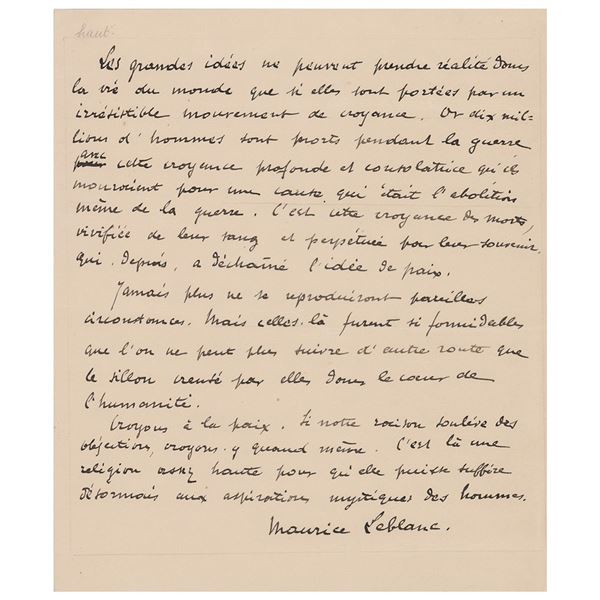 haut.
Les grandes idées ne peuvent prendre réalité dans
la vie du monde que si elles sont portées par un
irrésistible mouvement de croyance. Or dix mil-
lions d'hommes sont morts pendant la guerre
avec
cette croyance profonde et consolatrice qu'ils
mouraient pour une cause qui était l'abolition
même de la guerre. C'est cette croyance des morts,
vivifiée de leur sang et perpétuée par leur souvenir,
qui, depuis, a déchaîné l'idée de paix.
Jamais plus ne se reproduiront pareilles
circonstances. Mais celles-là furent si formidables
que l'on ne peut plus suivre d'autre route que
le sillon creusé par elles dans le cœur de
l'humanité.
Croyons à la paix. Si notre raison soulève des
objections, croyons-y quand même. C'est là une
religion assez haute pour qu'elle puisse suffire
désormais aux aspirations mystiques des hommes.
Maurice Leblanc.